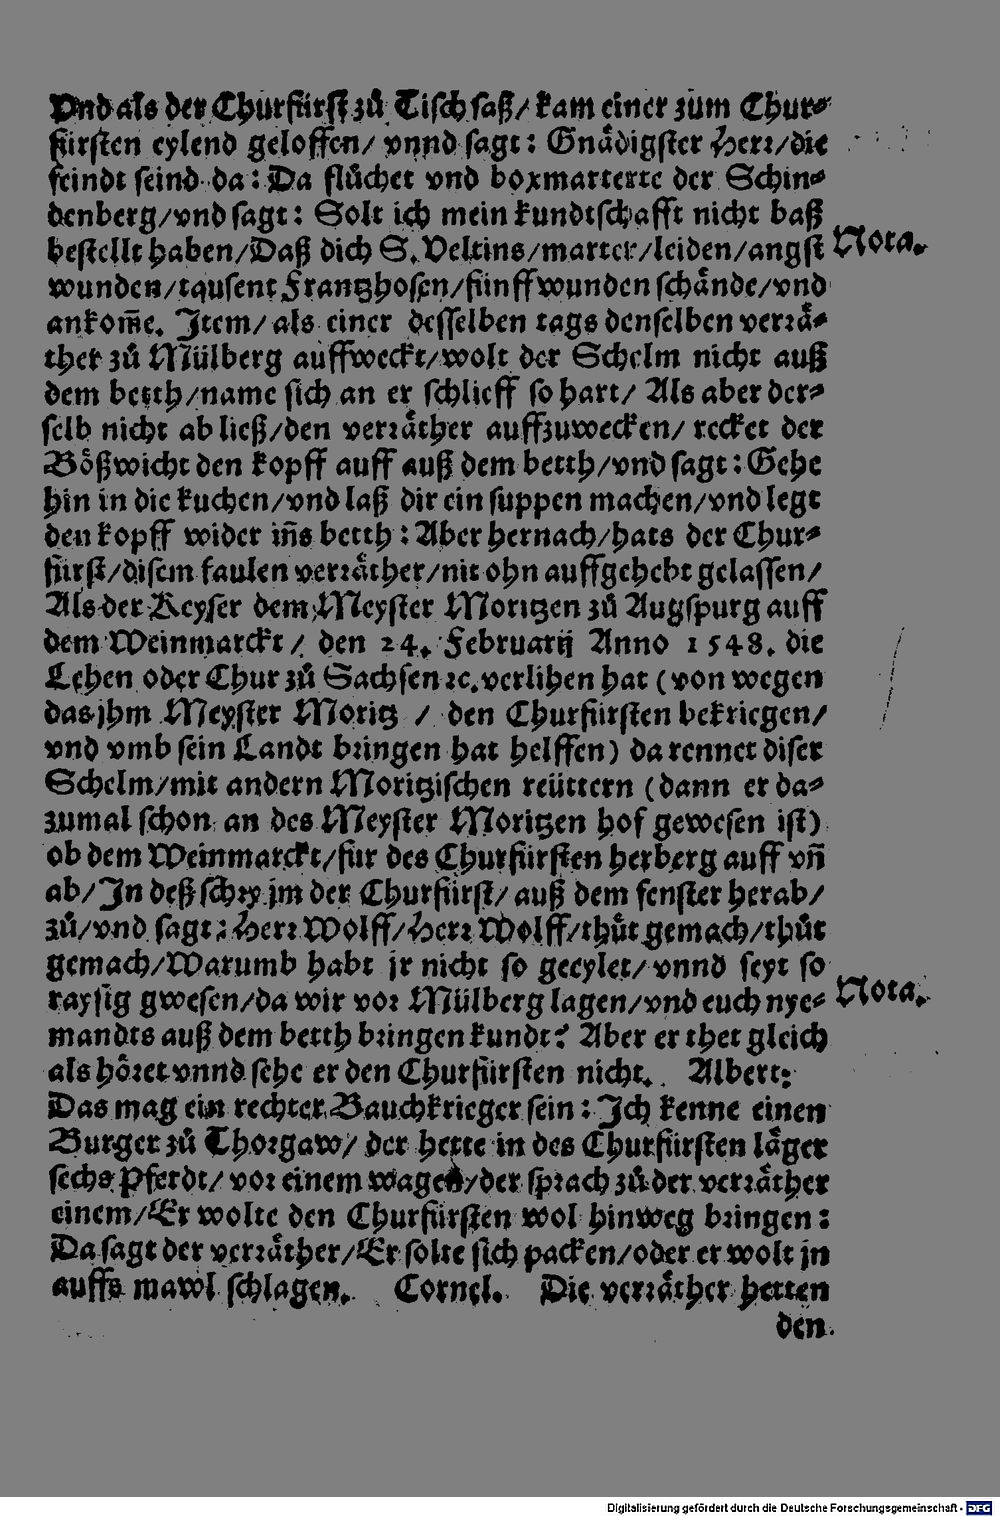 Vnd als der Churfürst zů Tisch saß/ kam einer zum Chur⸗
fürsten eylend geloffen/ vnnd sagt: Gnädigster Herr/die
feindt seind da: Da flůchet vnd boxmarterte der Schin⸗
denberg/vnd sagt: Solt ich mein kundtschafft nicht baß
bestellt haben/Daß dich S. Veltins/marter/leiden/angst
Nota.
wunden/tausent Frantzhosen/fünff wunden schände/vnd
ankom̄e. Item/ als einer desselben tags denselben verrä⸗
ther zů Mülberg auffweckt/wolt der Schelm nicht auß
dem betth/name sich an er schlieff so hart/ Als aber der⸗
selb nicht ab ließ/den verräther auffzuwecken/ recket der
Bößwicht den kopff auff auß dem betth/vnd sagt: Gehe
hin in die kuchen/vnd laß dir ein suppen machen/vnd legt
den kopff wider in̄s betth: Aber hernach/hats der Chur⸗
fürst/disem faulen verräther/nit ohn auffgehebt gelassen/
Als der Keyser dem Meyster Moritzen zů Augspurg auff
dem Weinmarckt/ den 24. Februarij Anno 1548. die
Lehen oder Chur zů Sachsen ꝛc. verlihen hat (von wegen
das jhm Meyster Moritz / den Churfürsten bekriegen/
vnd vmb sein Landt bringen hat helffen) da rennet diser
Schelm/mit andern Moritzischen reüttern (dann er da⸗
zumal schon an des Meyster Moritzen hof gewesen ist)
ob dem Weinmarckt/für des Churfürsten herberg auff vn̄
ab/ In deß schry jm der Churfürst/ auß dem fenster herab/
zů/vnd sagt: Herr Wolff/Herr Wolff/thůt gemach/thůt
gemach/Warumb habt jr nicht so geeylet/ vnnd seyt so
raysig gwesen/da wir vor Mülberg lagen/vnd euch nye⸗
Nota.
mandts auß dem betth bringen kundt? Aber er thet gleich
als höret vnnd sehe er den Churfürsten nicht. Albert:
Das mag ein rechter Bauchkrieger sein: Ich kenne einen
Burger zů Thorgaw/ der hette in des Churfürsten läger
sechs Pferdt/ vor einem wagen/der sprach zů der verräther
einem/Er wolte den Churfürsten wol hinweg bringen:
Da sagt der verräther/Er solte sich packen/oder er wolt jn
auffs mawl schlagen. Cornel. Die verräther hetten
den
Digitalisierung gefördert durch die Deutsche Forschungsgemeinschaft - DFG